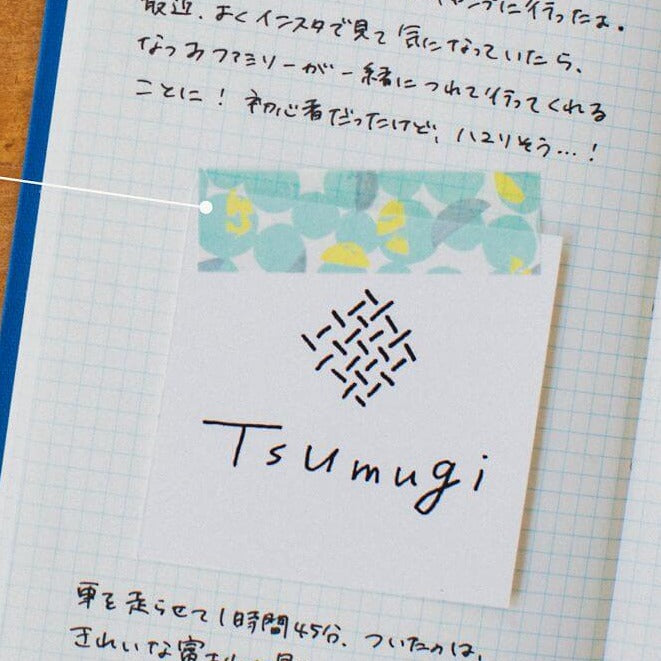 ャンプに行ったよ。
最近、よくインスタで見て気になっていたら、
なつみファミリーが一緒につれて行ってくれる
ことに！初心者だったけど、ハマりそう…！
Tsumugi
車を走らせて1時間45分、ついたのは、
きれいな富